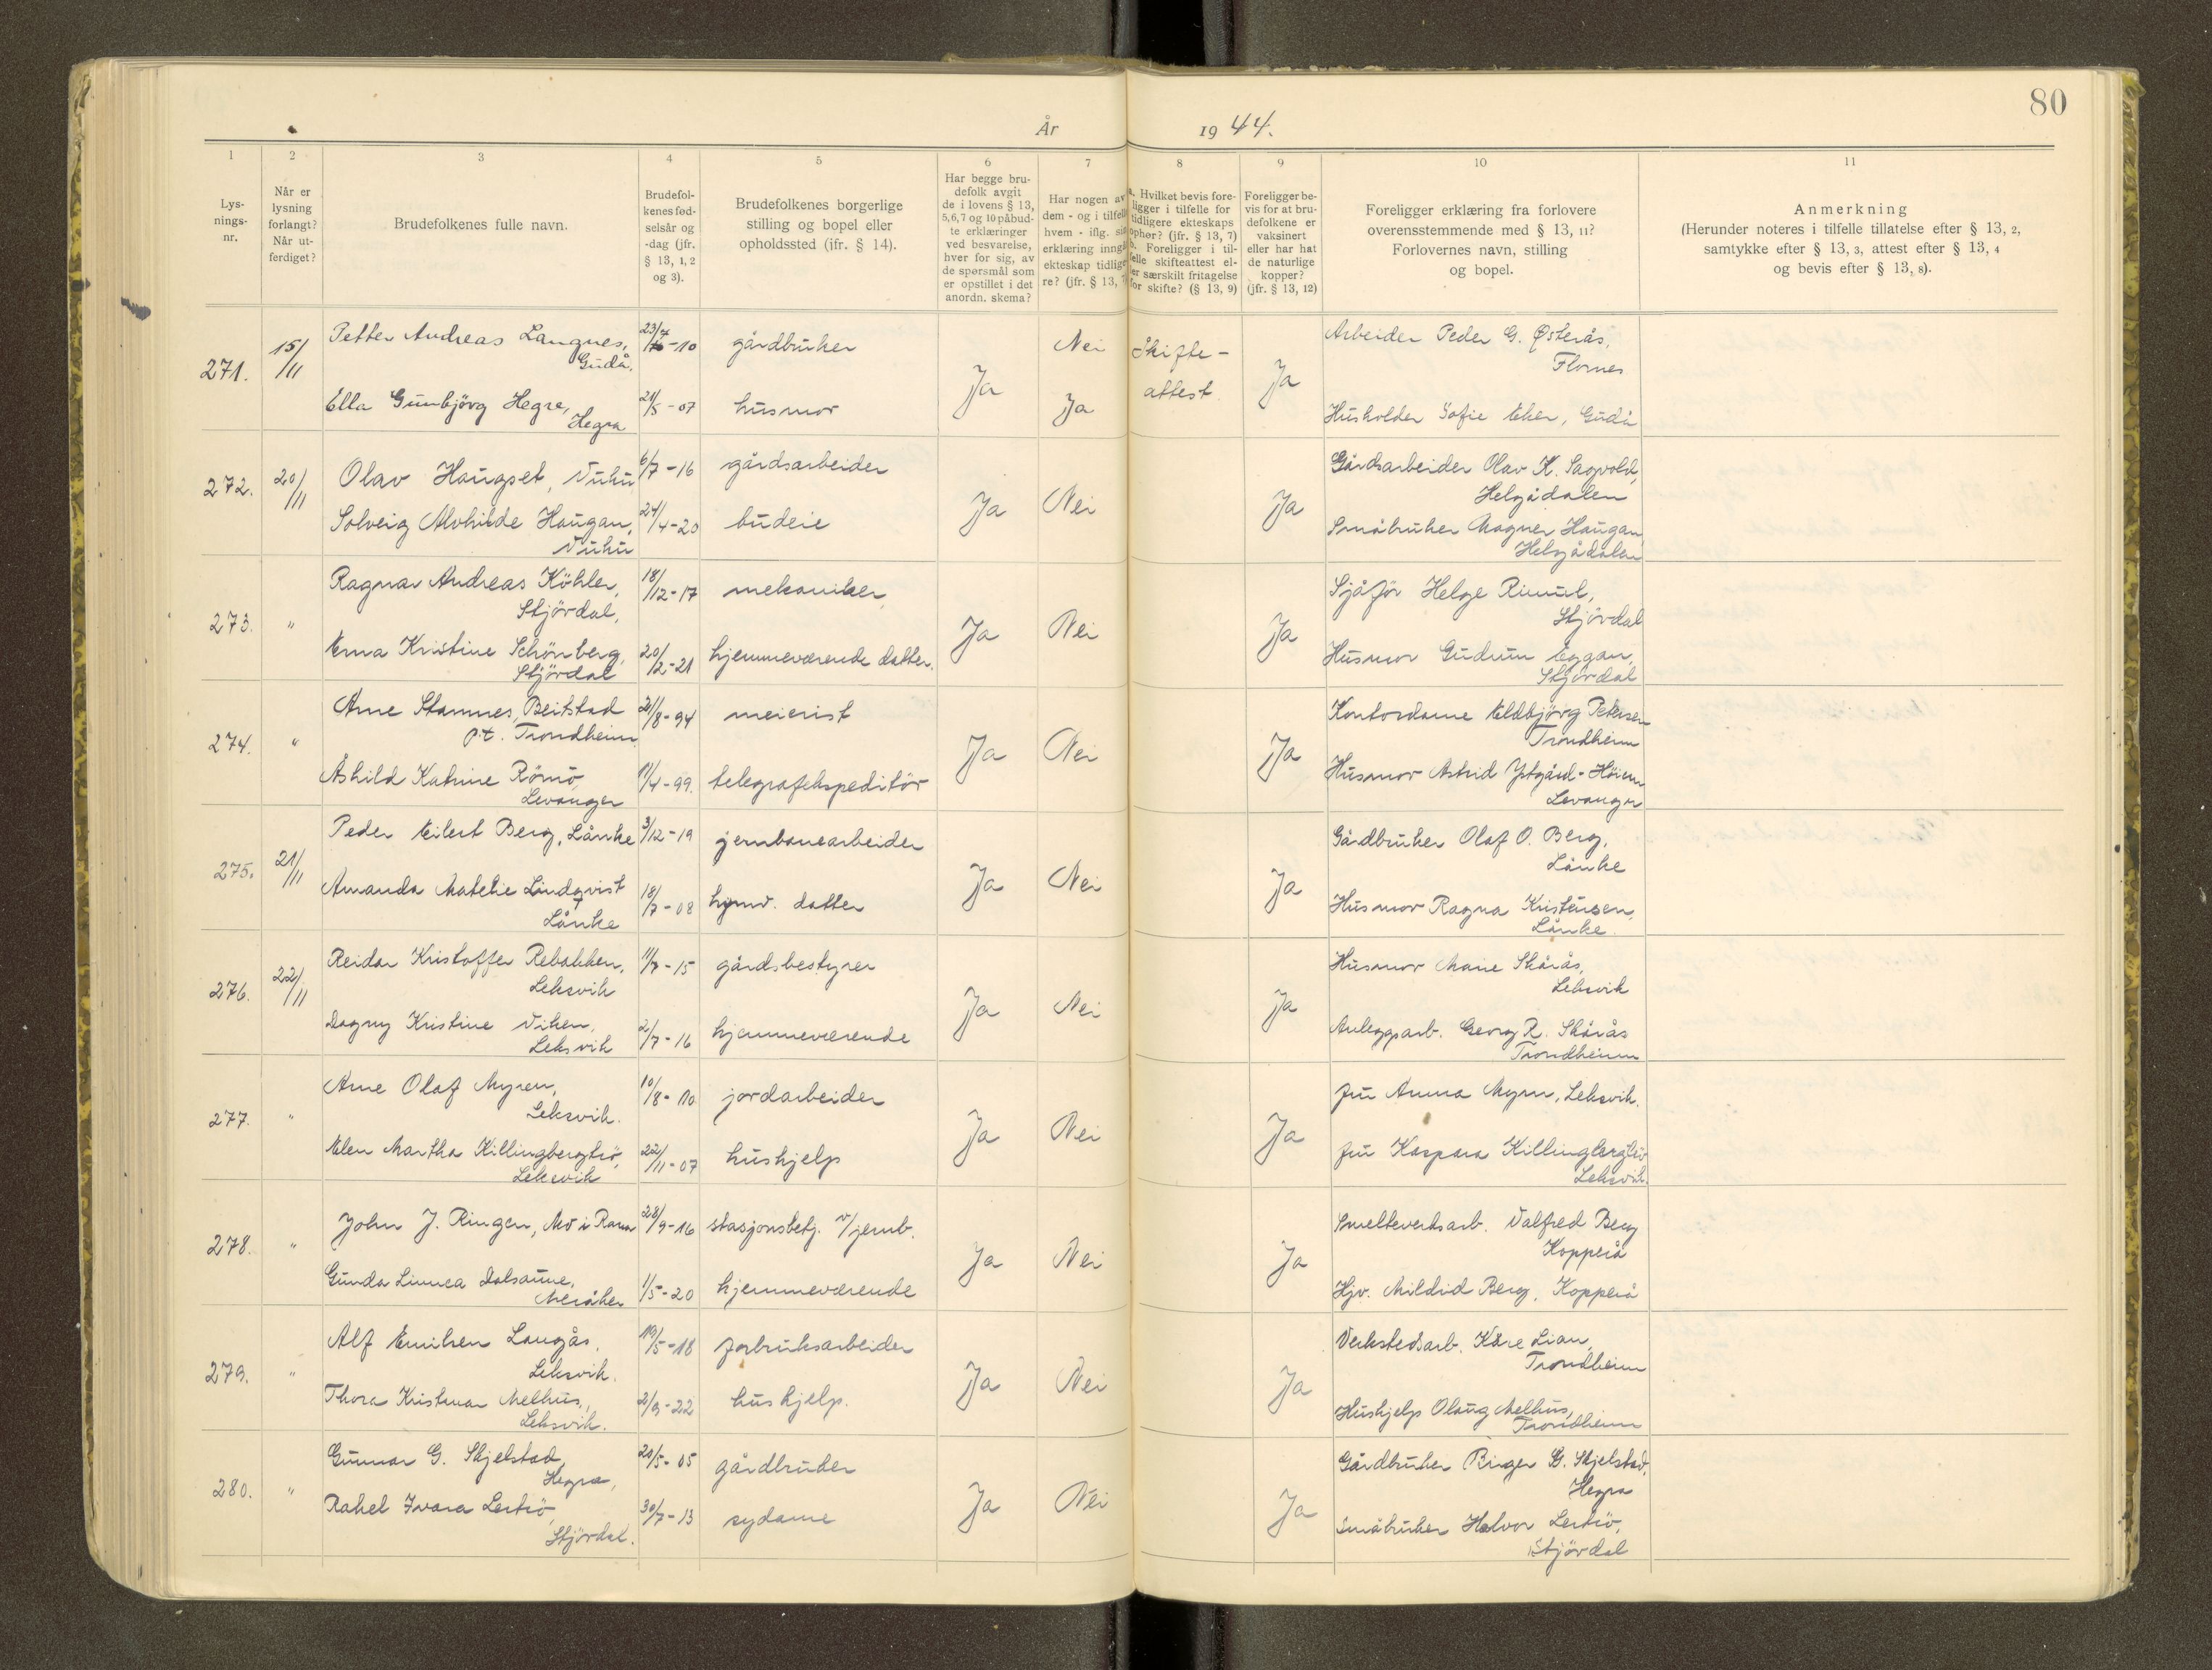 80
År 1944.
1 2 3 4 5 6 7 8 9 10 11
Lys-
nings-
nr.
Når er
lysning
forlangt?
Når ut-
ferdiget?
Brudefolkenes fulle navn.
Brudefol-
kenes fød-
selsår og
-dag (jfr.
§ 13, 1, 2
og 3).
Brudefolkenes borgerlige
stilling og bopel eller
opholdssted (jfr. § 14).
Har begge bru-
defolk avgit
de i lovens § 13,
5,6,7 og 10 påbud-
te erklæringer
ved besvarelse,
hver for sig, av
de spørsmål som
er opstillet i det
anordn. skema?
Har nogen av
dem - og i tilfelle
hvem - iflg. sin
erklæring inngått
ekteskap tidlige-
re? (jfr. § 13, 7)
a. Hvilket bevis fore-
ligger i tilfelle for
tidligere ekteskaps
ophør? (jfr. § 13, 7)
b. Foreligger i til-
felle skifteattest el-
ler særskilt fritagelse
for skifte? (§ 13, 9)
Foreligger be-
vis for at bru-
defolkene er
vaksinert
eller har hat
de naturlige
kopper?
(jfr. § 13, 12)
Foreligger erklæring fra forlovere
overensstemmende med § 13, 11?
Forlovernes navn, stilling
og bopel.
Anmerkning
(Herunder noteres i tilfelle tillatelse efter § 13, 2,
samtykke efter § 13, 3, attest efter § 13, 4
og bevis efter § 13, 8).
271. 15/11 Petter Andreas Langnes, 23/-10 gårdbruker Nei Skifte- Arbeider Peder G. Østerås,
Gudå, Ja attest Ja Flornes
Ella Gunbjörg Hegre, 21/5-07 husmor Ja Husholder Sofie Eker, Gudå
Hegra
272. 20/11 Olav Haugset, Vuku 6/7-16 gårdsarbeider Ja Nei Ja Gårdsarbeider Olav K. Sagvold,
Helgådalen
Solveig Alvhilde Haugan, 24/4-20 budeie Småbruker Magner Haugan
Vuku Helgådalen
273. " Ragnar Andreas Köhler, 18/12-17 mekaniker Ja Nei Ja Sjåför Helge Rimul,
Stjördal, Stjördal
Erna Kristine Schönberg, 20/12-21 hjemmeværende datter. Husmor Gudrun Eggan,
Stjördal Stjördal
274. " Arne Stamnes, Beitstad 21/8-94 meierist Ja Nei Ja Kontordame Eldbjörg Petersen
p.t. Trondheim Trondheim
Åshild Katrine Römo, 11/4-99. telegrafekspeditör Husmor Astrid Ystgård-Höiem
Levanger Levanger
275. 21/11 Peder Eilert Berg, Lånke 3/12-19 jernbanearbeider Ja Nei Ja Gårdbruker Olaf O. Berg,
Lånke
Amanda Matelie Lindqvist 18/7-08 hjmv. datter Husmor Ragna Kristensen,
Lånke Lånke
276. 22/11 Reidar Kristoffer Rebakken, 11/7-15 gårdsbestyrer Ja Nei Ja Husmor Marie Skårås,
Leksvik Leksvik
Dagny Kristine Viken, 2/7-16 hjemmeværende Anleggsarb. Georg R. Skårås
Leksvik Trondheim
277. " Arne Olaf Myren, 10/8-10 jordarbeider Ja Nei Ja fru Anna Myren, Leksvik.
Leksvik.
Elen Martha Killingbergtrö, 22/11-07 hushjelp fru Kaspara Killingbergtrö
Leksvik Leksvik.
278. " John J. Ringen, Mo i Rana 28/9-16 stasjonsbetj. v/jernb. Ja Nei Ja Smelteverksarb. Valfred Berg
Kopperå
Gunda Linnea Dalsaune, 1/5-20 hjemmeværende Hjv. Mildrid Berg, Kopperå
Meråker
279. " Alf Emilsen Langås, 19/5-18 fabriksarbeider Ja Nei Ja Verkstedsarb. Kåre Lian,
Leksvik. Trondheim
Thora Melhus, 2/9-22 hushjelp. Hushjelp Olaug Melhus,
Leksvik. Trondheim
280. " Gunnar G. Skjelstad, 20/5-05 gårdbruker Ja Nei Ja Gårdbruker Birger G. Skjelstad,
Hegra, Hegra
Rakel Ivara Lertrö, 30/7-13 sydame Småbruker Halvor Lertrö,
Stjördal. Stjördal